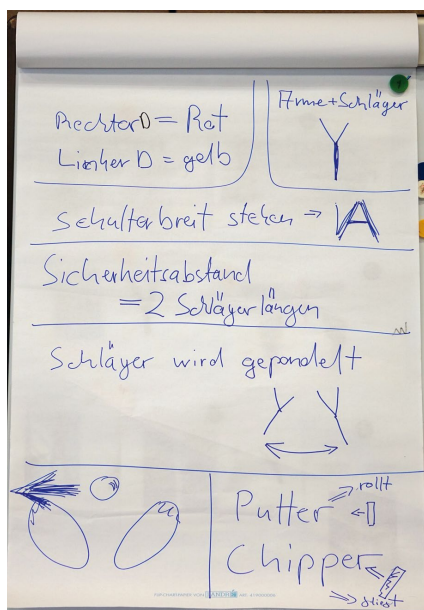 Rechter D = Rot
Linker D = gelb
Arme + Schläger
Y
Schulterbreit stehen → A
Sicherheitsabstand
= 2 Schlägerlängen
Schläger wird gependelt
Putter → rollt
Chipper
→ fliegt